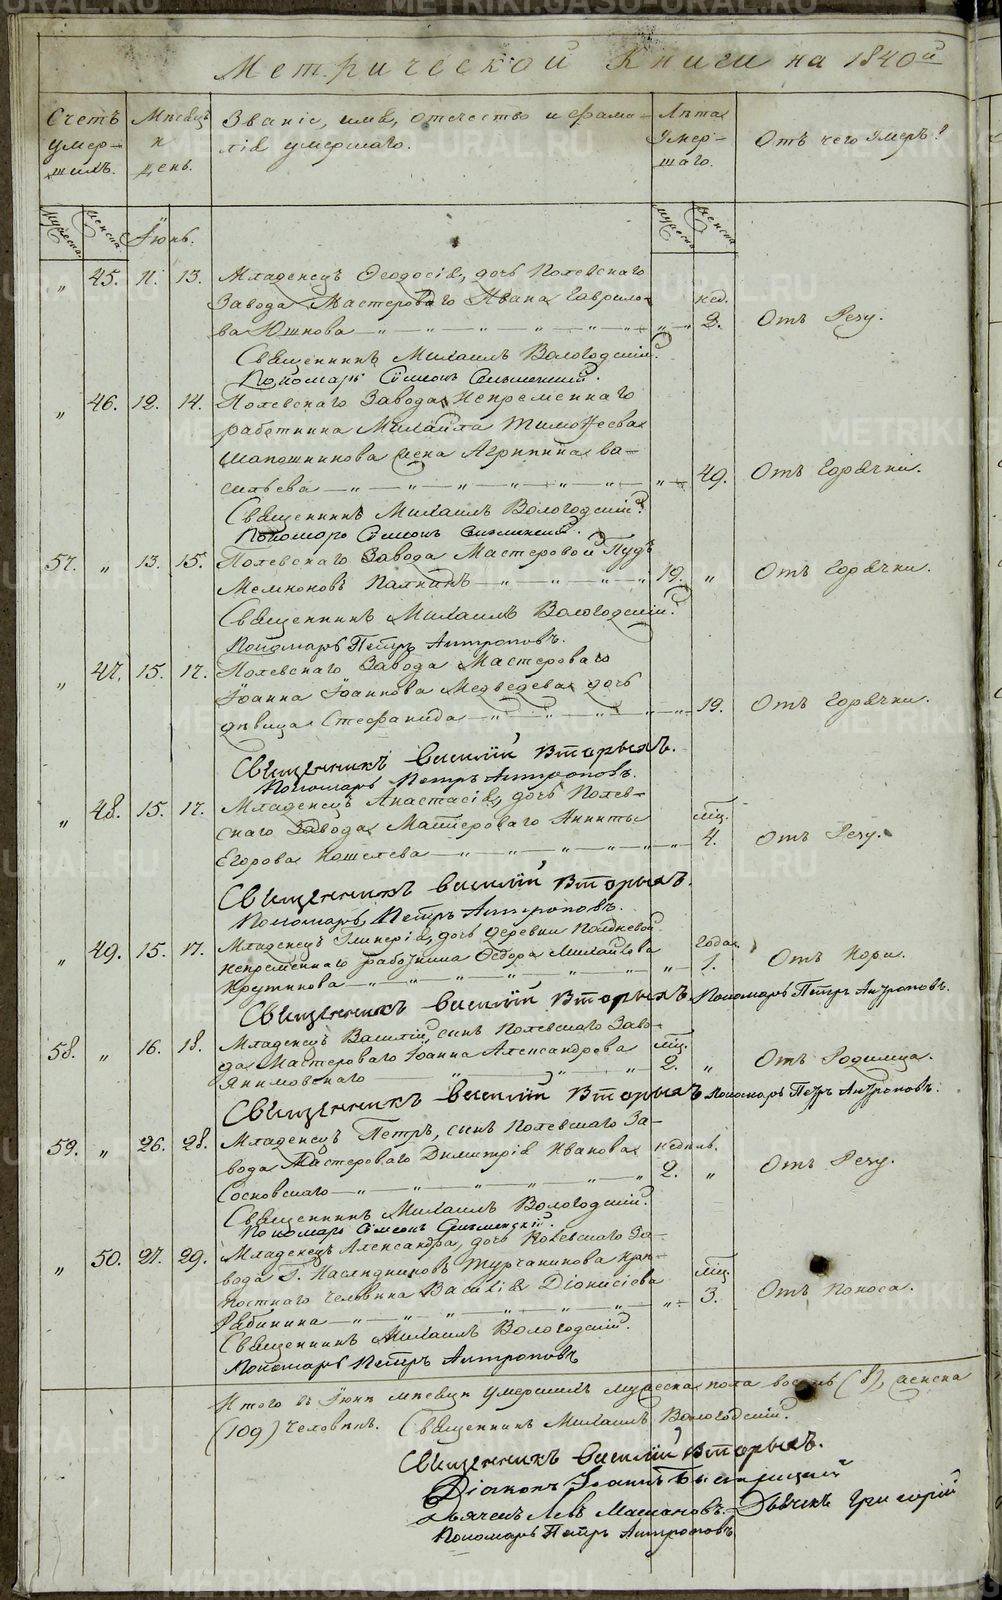 Метрической Книги на 1840й
Счетъ умер- шихъ. Мѣсяцъ и день. Званіе, имя, отечество и фами- лія умершаго. Лѣта умер- шаго. Отъ чего умеръ?
мужеска женска Іюнь. мужеска женска
„ 45. 11. 13. Младенецъ Ѳеодосія, дочь Полевскаго
Завода Мастероваго Ивана Гаврило- нед.
ва Юшкова — „ — „ — „ — „ — „ — „ 2. Отъ Резу.
Священникъ Михаилъ Вологодскій.
Пономарь Сімеонъ
„ 46. 12. 14. Полевскаго Завода Непременнаго
работника Михайла Тимоѳеева
Шапошникова жена Агрипина Ва-
сильева — „ — „ — „ — „ — „ — „ 49. Отъ Горячки.
Священникъ Михаилъ Вологодскій.
Пономарь Сімеонъ
57. „ 13. 15. Полевскаго Завода Мастеровой Пудъ
Мемноновъ Палкинъ — „ — „ — „ 19. „ Отъ Горячки.
Священникъ Михаилъ Вологодскій.
Пономарь Петръ Антроповъ.
„ 47. 15. 17. Полевскаго Завода Мастероваго
Іоанна Іоаннова Медведева дочь
дѣвица Стефанида — „ — „ — „ — „ 19. Отъ Горячки.
Священникъ Василій Вторыхъ.
Пономарь Петръ Антроповъ.
„ 48. 15. 17. Младенецъ Анастасія, дочь Полев-
скаго Завода Мастероваго Никиты мѣц.
Егорова Кошелева — „ — „ — „ — „ 4. Отъ Резу.
Священникъ Василій Вторыхъ.
Пономарь Петръ Антроповъ.
„ 49. 15. 17. Младенецъ Гликерія, дочь деревни Полдневой
непременнаго работника Ѳедора Михайлова года
Крутикова — „ — „ — „ — „ — „ 1. Отъ Кори.
Священникъ Василій Вторыхъ. Пономарь Петръ Антроповъ.
58. „ 16. 18. Младенецъ Василій, сынъ Полевскаго Заво-
да Мастероваго Іоанна Александрова мѣц.
Якимовскаго — „ — „ — „ 2. „ Отъ Родимца.
Священникъ Василій Вторыхъ. Пономарь Петръ Антроповъ.
59. „ 26. 28. Младенецъ Петръ, сынъ Полевскаго За-
вода Мастероваго Димитрія Иванова недиль.
Сосновскаго — „ — „ — „ — „ — „ 2. „ Отъ Резу.
Священникъ Михаилъ Вологодскій.
Пономарь Сімеонъ
„ 50. 27. 29. Младенецъ Александра, дочь Полевскаго За-
вода Г. Наслѣдниковъ Турчанинова крѣ- мѣц
постнаго человѣка Василія Діонисіева 3. Отъ Поноса.
Рябинина — „ — „ — „ — „ — „
Священникъ Михаилъ Вологодскій.
Пономарь Петръ Антроповъ
Итого въ Іюнѣ мѣсяцѣ умершихъ мужеска пола восемь (8), женска
(109) человѣкъ. Священникъ Михаилъ Вологодскій.
Священникъ Василій Вторыхъ.
Діаконъ Іоаннъ
Дьячекъ Левъ Дьячекъ Григорій
Пономарь Петръ Антроповъ
METRIKI.GASO-URAL.RU